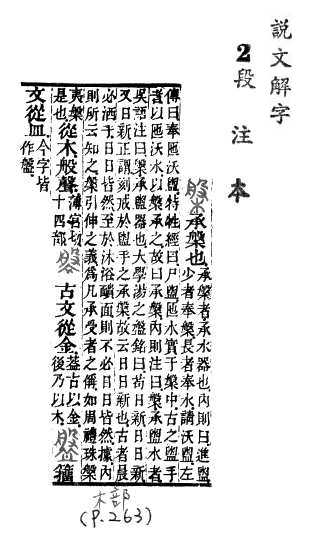 説文解字
2段注本
槃 承槃也 承槃者承水器也內則曰進盥
少者奉槃長者奉水請沃盥左
傳曰奉匜沃盥特牲經曰尸盥匜水實于槃中古之盥手
者以匜沃水以槃承之故曰承槃內則注曰槃承盥水者
吳語注曰槃承盥器也大學湯之盤銘曰苟日新日日新
又日新正謂刻戒於盥手之承槃故云日日新也古者晨
必洒手日日皆然至於沐浴靧面則不必日日皆然據內
則所云知之槃引伸之義爲凡承受者之偁如周禮珠槃
夷槃是也 從木般聲 薄官切十四部 鎜 古文從金 蓋古以金後乃以木 盤 籒
文從皿 今字皆作盤
木部
(P.263)